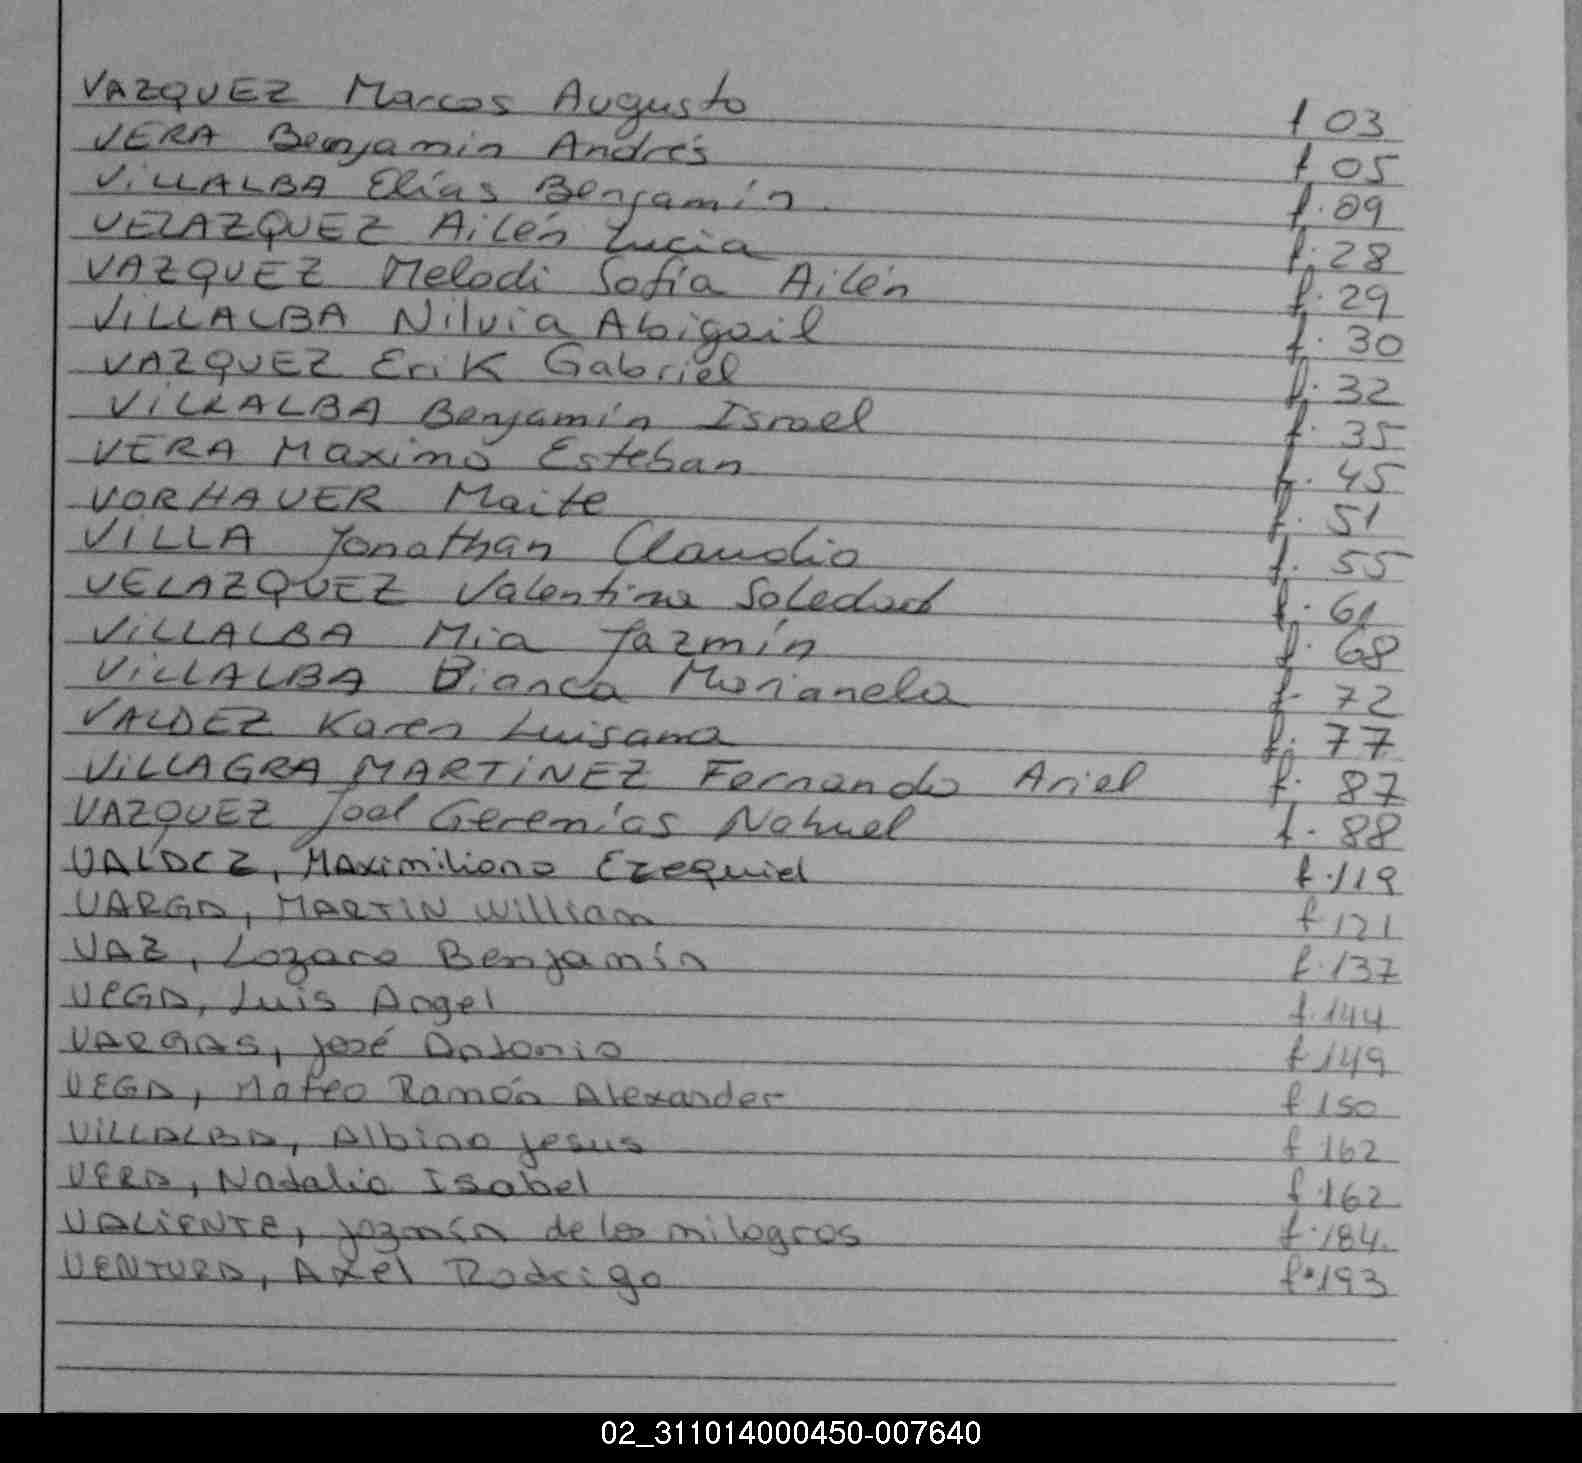 VAZQUEZ Marcos Augusto f 03
VERA Benjamin Andrés f 05
ViLLALBA Elías Benjamín. f. 09
VELAZQUEZ Ailén Lucia f. 28
VAZQUEZ Melodi Sofía Ailén f. 29
ViLLALBA Nilvia Abigail f. 30
VAZQUEZ Erik Gabriel f. 32
ViLLALBA Benjamín Israel f. 35
VERA Maximo Esteban f. 45
VORHAUER Maite f. 51
ViLLA Jonathan Claudio f. 55
VELAZQUEZ Valentina Soledad f. 61
ViLLALBA Mia Jazmín f. 68
ViLLALBA Bianca Marianela f. 72
VALDEZ Karen Luisana f. 77
ViLLAGRA MARTiNEZ Fernando Ariel f. 87
VAZQUEZ Joel Geremías Nahuel f. 88
VALDEZ, Maximiliano Ezequiel f. 119
VARGA, MARTIN William f 121
VAZ, Lazaro Benjamín f. 137
VEGA, Luis Angel f. 144
VARGAS, José Antonio f 149
VEGA, Mateo Ramón Alexander f 150
ViLLALBA, Albino Jesus f 162
VERA, Natalia Isabel f 162
VALiENTE, Jazmín de los milagros f. 184.
VENTURA, Axel Rodrigo f. 193
02_311014000450-007640